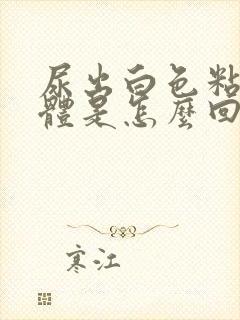 尿出白色粘
體是怎麼回
寒江